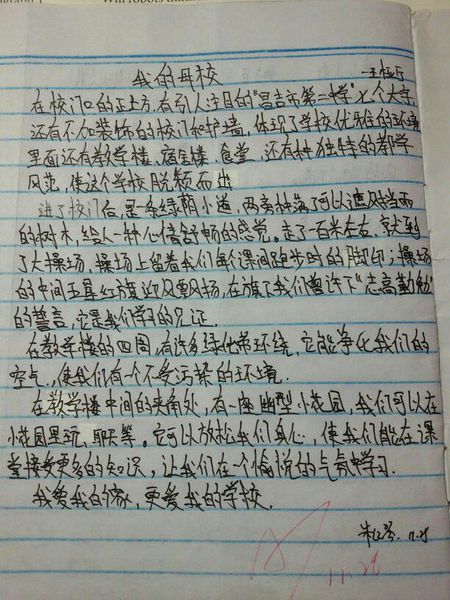 Will robots
我的母校
在校门口的正上方,有引人注目的"昌吉市第二中学"七个大字
还有不加装饰的校门和护墙,体现了学校优先的环境
里面还有教学楼、宿舍楼、食堂,还有种独特的教学
风范,使这个学校脱颖而出
进了校门后,是一条绿荫小道,两旁种落了可以遮风挡雨
的树木,给人一种心情舒畅的感觉。走了一百米左右,就到
了大操场,操场上留着我们每个课间跑步时的脚印;操场
的中间五星红旗迎风飘扬,在旗下我们曾许下"志高勤勉"
的誓言,它是我们学习的见证.
在教学楼的四周,有许多绿化带环绕,它能净化我们的
空气,使我们有个不受污染的环境.
在教学楼中间的夹角处,有一座幽型小花园,我们可以在
小花园里玩,聊天等。它可以放松我们身心,使我们能在课
堂接受更多的知识,让我们在一个愉悦的气氛中学习.
我爱我的家,更爱我的学校.
11.29
11.29